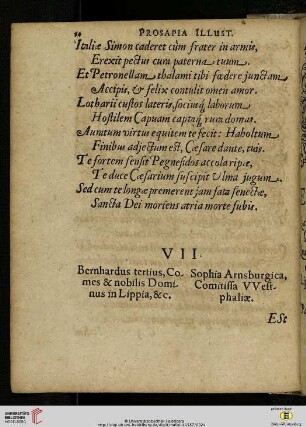 PROSAPIA ILLUST.
Italiæ Simon caderet cùm frater in armis,
Erexit pectus cum paterna tuum.
Et Petronellam thalami tibi fœdere junctam
Accipis, & felix contulit omen amor.
Lotharii custos lateris, sociusq; laborum
Hostilem Capuam captaq́; rura domas.
Auratum virtus equitem te fecit: Haboltum
Finibus adjectum est, Cæsare dante, tuis.
Te fortem sensit Pegnesidos accola ripæ,
Te duce Cæsarium suscipit Vlma jugum.
Sed cum te longæ premerent jam fata senectæ,
Sancta Dei moriens atria morte subis.
VII.
Bernhardus tertius, Co-
mes & nobilis Domi-
nus in Lippia, &c.
Sophia Arnsburgica,
Comitissa VVest-
phaliæ.
ESt
UNIVERSITÄTS-
BIBLIOTHEK
HEIDELBERG